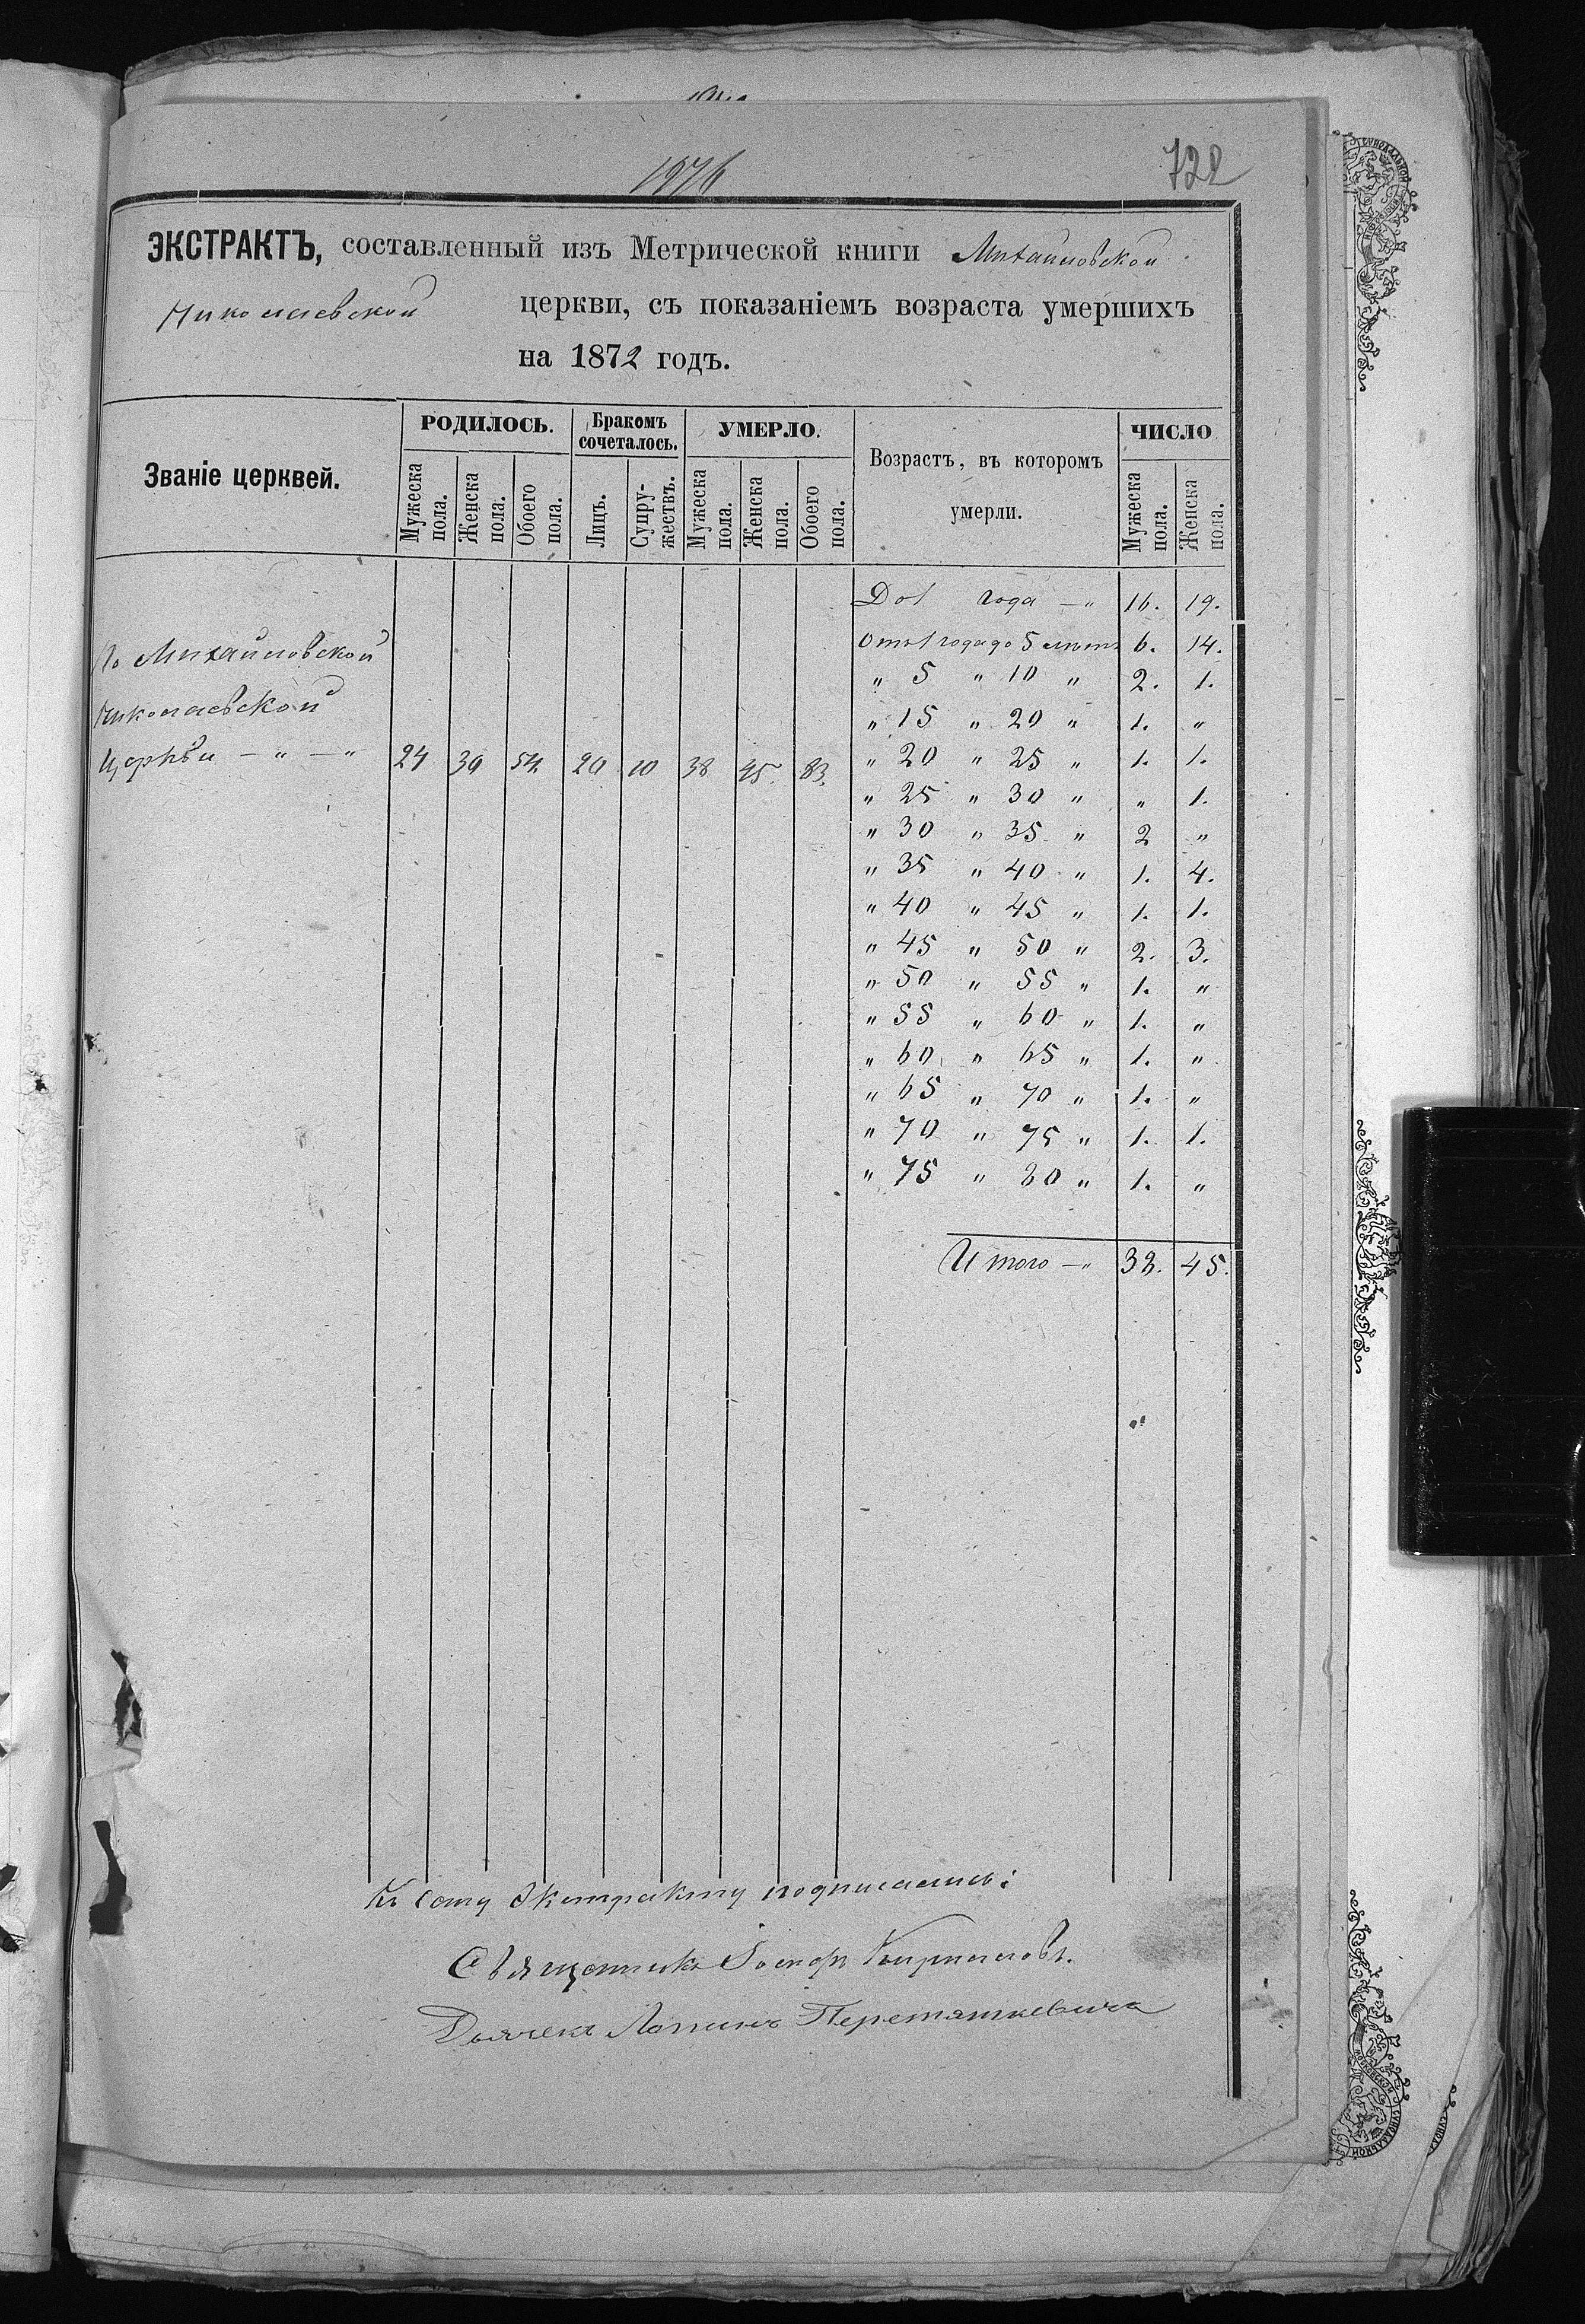 1976
722
ЭКСТРАКТЪ, составленный изъ Метрической книги Михайловской
Николаевской церкви, съ показаніемъ возраста умершихъ
на 1872 годъ.
Званіе церквей.
РОДИЛОСЬ. Мужеска пола. Женска пола. Обоего пола.
Бракомъ сочеталось. Лицъ. Супружествъ.
УМЕРЛО. Мужеска пола. Женска пола. Обоего пола.
Возрастъ, въ которомъ умерли.
ЧИСЛО Мужеска пола. Женска пола.
До 1 года — " 16. 19.
По Михайловской
Отъ 1 года до 5 лѣтъ 6. 14.
" 5 " 10 " 2. 1.
Николаевской
" 15 " 20 " 1. "
Церкви — " — " 24 30 54 20 10 38 45. 83.
" 20 " 25 " 1. 1.
" 25 " 30 " " 1.
" 30 " 35 " 2 "
" 35 " 40 " 1. 4.
" 40 " 45 " 1. 1.
" 45 " 50 " 2. 3.
" 50 " 55 " 1. "
" 55 " 60 " 1. "
" 60 " 65 " 1. "
" 65 " 70 " 1. "
" 70 " 75 " 1. 1.
" 75 " 80 " 1. "
Итого — " 38. 45.
Къ сему Экстракту подписались:
Священникъ Іосифъ
Дьячекъ Перетяткевичъ